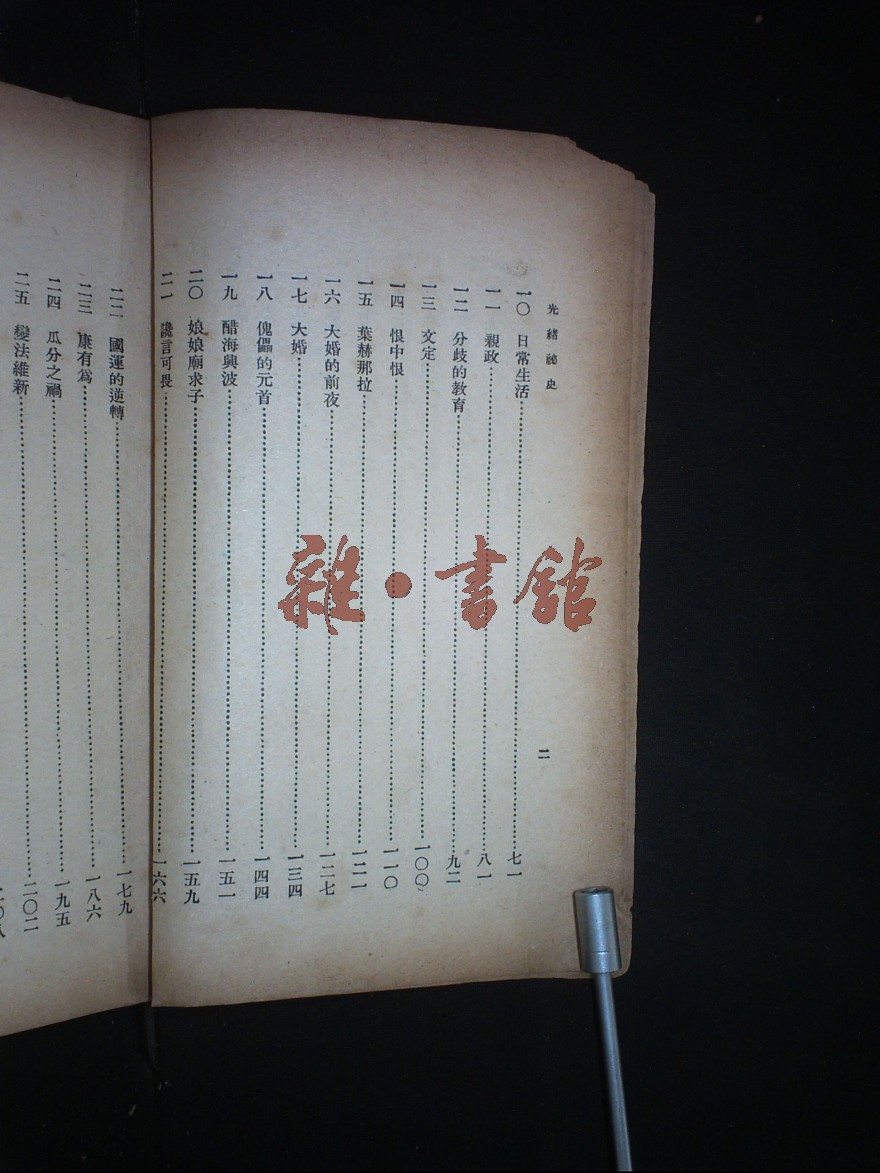 光緒祕史
二
一〇 日常生活……七一
一一 親政……八一
一二 分歧的教育……九二
一三 文定……一〇〇
一四 恨中恨……一一〇
一五 葉赫那拉……一二一
一六 大婚的前夜……一二七
一七 大婚……一三四
一八 傀儡的元首……一四四
一九 醋海興波……一五一
二〇 娘娘廟求子……一五九
二一 讒言可畏……一六六
二二 國運的逆轉……一七九
二三 康有爲……一八六
二四 瓜分之禍……一九五
二五 變法維新……二〇二
雜·書館